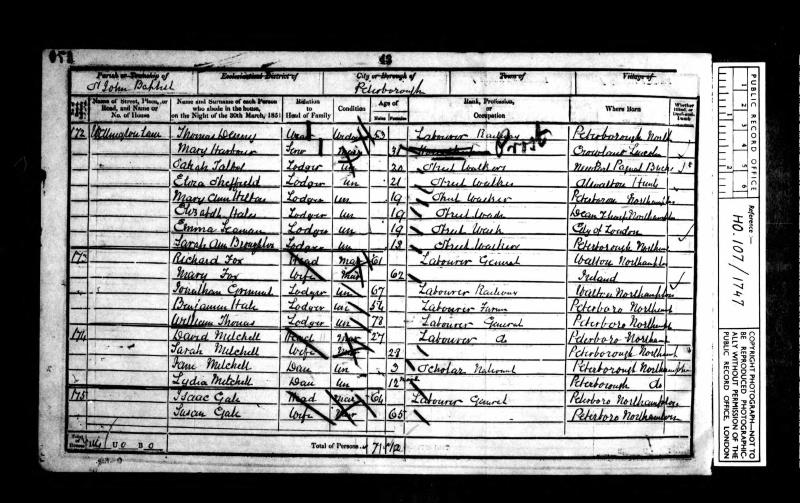 43
Parish or Township of
Ecclesiastical District of
City or Borough of
Town of
Village of
St John Baptist
Peterborough
Name of Street, Place, or Road, and Name or No. of House
Name and Surname of each Person who abode in the house, on the Night of the 30th March, 1851
Relation to Head of Family
Condition
Age of
Males Females
Rank, Profession, or Occupation
Where Born
172 Wellington Lane Thomas 53 Labourer Railway Peterborough North
Mary Harbour Serv Crowland Lincoln
Sarah Talbot Lodger Un 20 Street Walker Newport Pagnal Bucks
Eliza Sheffield Lodger Un 21 Street Walker Alwalton Hunts
Mary Ann Lodger Un 19 Street Walker Peterboro Northampton
Elizabeth Hales Lodger Un 19 Street Walk
Emma Seaman Lodger Un 19 Street Walk City of London
Sarah Ann Broughton Lodger Un 18 Street Walker Peterborough Northam
173 Richard Fox Head Mar 61 Labourer General Walton Northampton
Mary Fox Wife Mar 62 Ireland
Jonathan Lodger Un 67 Labourer Railway Walton Northampton
Benjamin Hale Lodger Un 54 Labourer Farm Peterboro Northamt
William Thomas Lodger Un 78 Labourer General Peterboro Northamt
174 David Mitchell Head Mar 27 Labourer Do Peterboro Northam
Sarah Mitchell Wife Mar 28 Peterborough Northamt
Jane Mitchell Dau Un 3 Scholar National Peterborough Northampton
Lydia Mitchell Dau Un 12 Peterborough Do
175 Isaac Gale Head Mar 64 Labourer General Peterboro Northampton
Susan Gale Wife Mar 65 Peterboro Northampton
U 0 B 0 Total of Persons
PUBLIC RECORD OFFICE
1 2 3 4 5 6
Reference :-
HO 107/1747
COPYRIGHT PHOTOGRAPH—NOT TO BE REPRODUCED PHOTOGRAPHICALLY WITHOUT PERMISSION OF THE PUBLIC RECORD OFFICE, LONDON